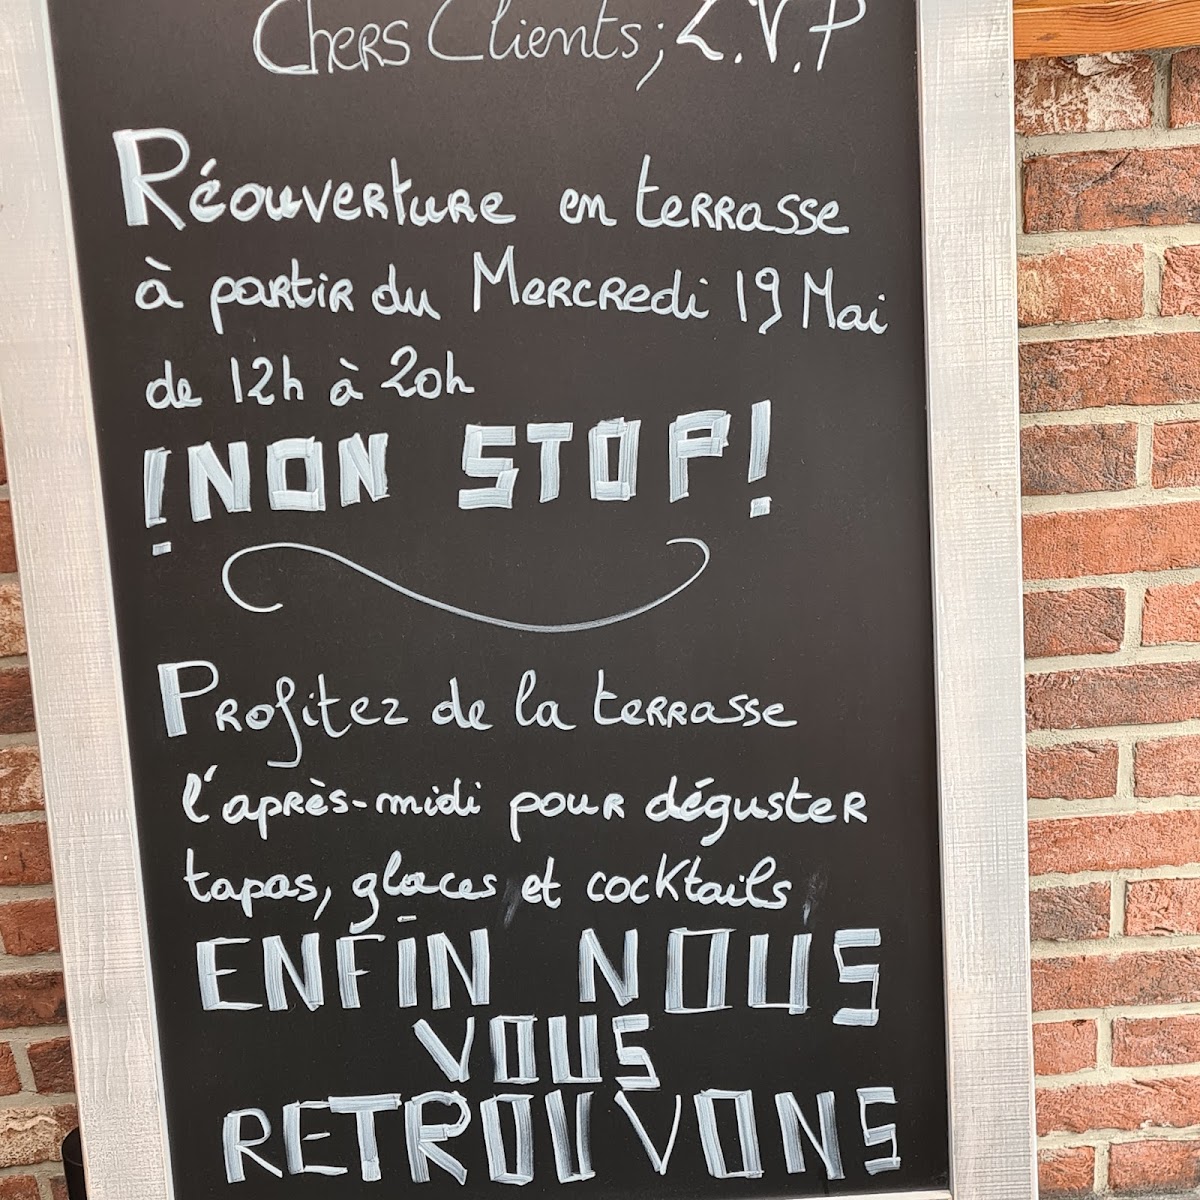 Chers Clients; L.V.P
Réouverture en terrasse
à partir du Mercredi 19 Mai
de 12h à 20h
!NON STOP!
Profitez de la terrasse
l'après-midi pour déguster
tapas, glaces et cocktails
ENFIN NOUS
VOUS
RETROUVONS